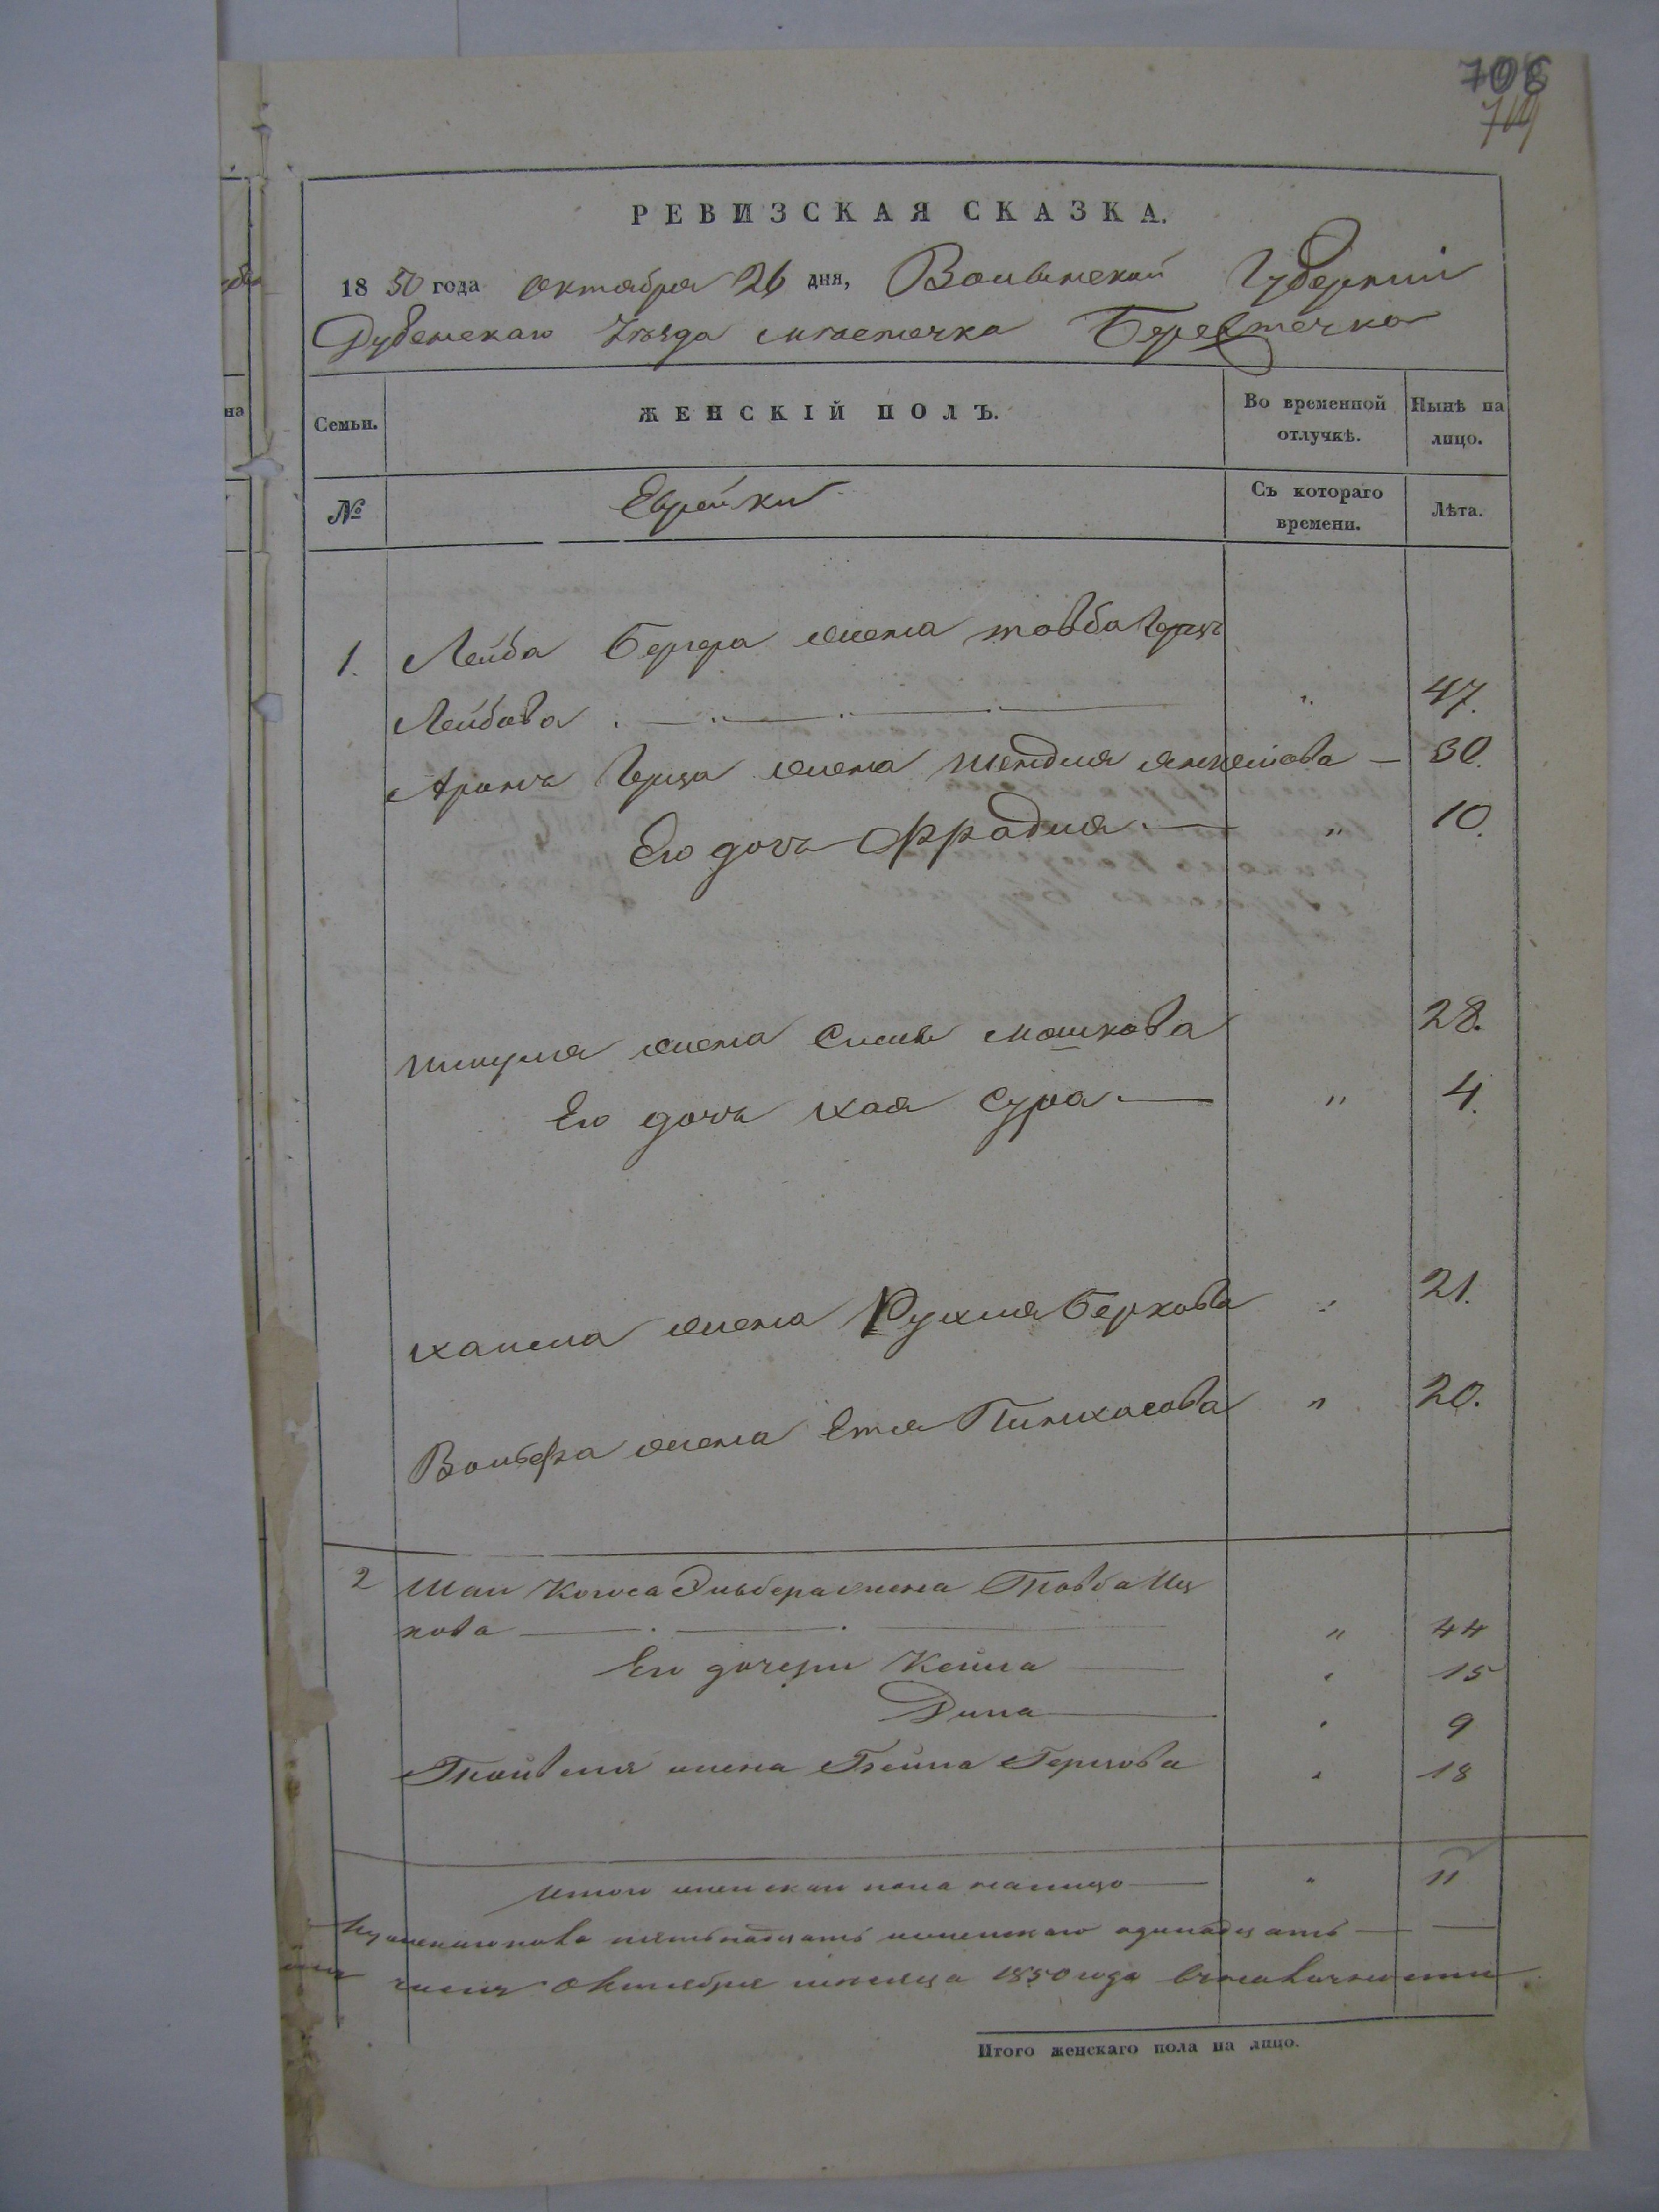 706
РЕВИЗСКАЯ СКАЗКА.
1850 года октября 26 дня, Волынской Губерніи
Дубенскаго Уѣзда мѣстечка Берестечка
на
Семьи.
ЖЕНСКІЙ ПОЛЪ.
Во временной отлучкѣ.
Нынѣ на лицо.
№
Еврейки
Съ котораго времени.
Лѣта.
1. Лейба Бергера жена товба Герш
Лейбова 47.
жена шендля янкелова — 30.
Его дочь Фрадля — " 10.
жена мошкова 28.
Его дочь хая Сура — " 4.
жена Рухля Беркова " 21.
Вольфа жена Етя Пинхасова " 20.
2 жена Товба Иц
кова " 44
Его дочери Кейла " 15
Дина " 9
жена Бейла Гершова " 18
Итого женскаго пола налицо — " 11
пятьнадцать женскаго одинадцать
октября мѣсяца 1850 года
Итого женскаго пола на лицо.